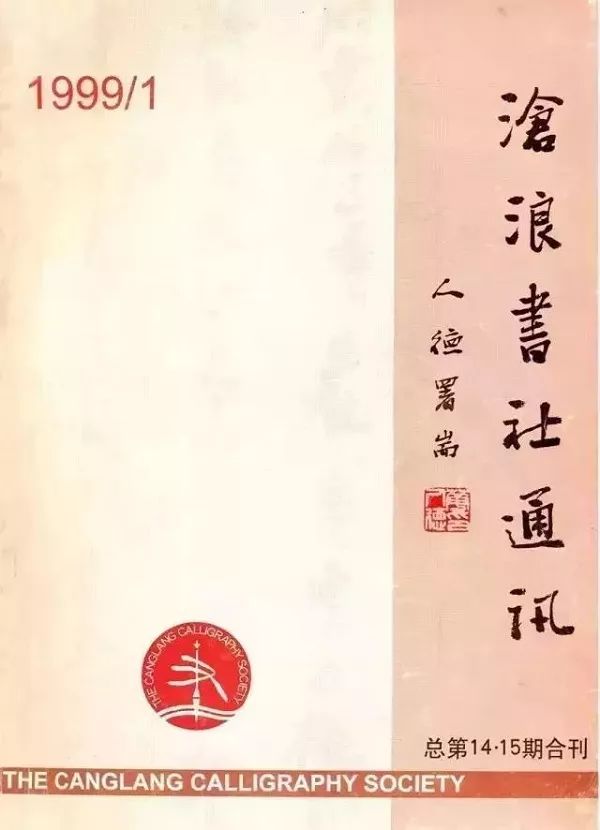 1999/1
滄浪書社通訊
人德署耑
THE CANGLANG CALLIGRAPHY SOCIETY
总第14·15期合刊
THE CANGLANG CALLIGRAPHY SOCIETY